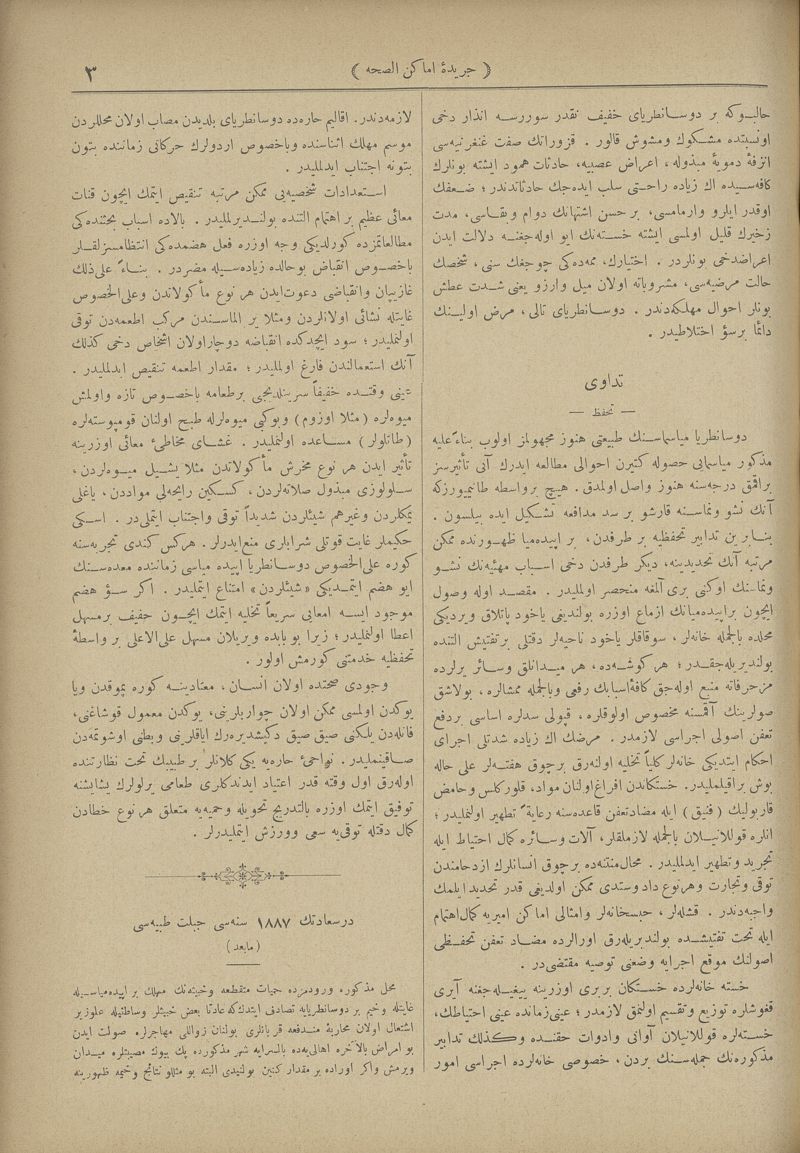 ﴿ جریدهٔ اماکن الصحه ﴾
٣
حالبوکه بر دوسانطریای خفیف نقدر سوررسه انذار دخی
اونسبتده مشکوك ومشوش قالور . قزوراتك صفت غنغرنیه‌سی
انزفهٔ دمویهٔ مبذوله ، اعراض عصبیه، حادثات همود ایشته بونلرك
کافه‌سیده اك زیاده راحتی سلب ایده‌جك حادثاتدندر ؛ ضعفك
اوقدر ایلرو وارمامسی، بر حسن اشتهانك دوام وبقاسی، مدت
زحیرك قلیل اولمسی ایشته خسته‌نك ایو اوله‌جغنه دلالت ایدن
اعراضدخی بونلردر . اختیارك، ممه‌ده‌کی چوجغك سنی، شخصك
حالت مرضیه‌سی، مشروباته اولان میل وارزو یعنی شدت عطش
بونلر احوال مهلکه‌دندر . دوسانطریای تالی، مرض اولینك
دائما برسؤ اختلاطیدر .
تداوی
— تحفظ —
دوسانطریا میاسماسنك طبیعتی هنوز مجهولمز اولوب بناءً علیه
مذکور میاسمایی حصوله کتیرن احوالی مطالعه ایدرك آنی تأثیرسز
براقمق درجه‌سنه هنوز واصل اولمدق . هیچ برواسطه طانیمیورزکه
آنك نشو ونماسنه قارشو بر سد مدافعه تشکیل ایده بیلسون .
بنابرین تدابیر تحفظیه بر طرفدن، بر اپیده‌میا ظهورنده ممکن
مرتبه آنك تحدیدینه، دیکر طرفدن دخی اسباب مهیئه‌نك نشو
ونماسنك اوکنی بری آلمغه منحصر اولملیدر . مقصد اوله وصول
ایچون براپیده‌میانك ازماع اوزره بولندیغی یاخود پاتلاق ویردیکی
محلده بالجمله خانه‌لر، سوقاقلر یاخود ناحیه‌لر دقتلی برتفتیش التنده
بولندیریله‌جقدر ؛ هر کوشه‌ده، هر میدانلق وسائر یرلرده
مزخرفاته منبع اوله‌جق کافهٔ اسبابك رفعی وبالجمله ممشالره، بولاشق
صولرینك آقمسنه مخصوص اولوقلره، قپولی سدلره اساسی بردفع
تعفن اصولی اجراسی لازمدر . مرضك اك زیاده شدتلی اجرای
احکام ایتدیکی خانه‌لر کلیاً تخلیه اولنه‌رق برچوق هفته‌لر علی حاله
بوش براقیلملیدر. خستکاندن افراغ اولنان مواد، قلورکلس وحامض
قاربولیك (فنیق) ایله مضادتعفن قاعده‌سنه رعایةً تطهیر اولنملیدر ؛
انلره قوللانیلان بالجمله لازملقلر، آلات وسائره کمال احتیاط ایله
تجرید وتطهیر ایدلملیدر . محال منتنه‌ده برچوق انسانلرك ازدحامندن
توقی وتجارت وهرنوع داد وستدی ممکن اولدیغی قدر تحدید ایلمك
واجبه‌دندر . قشله‌لر ، حبسخانه‌لر وامثالی اماکن امیریه کمال اهتمام
ایله تحت تفتیشده بولندیریله‌رق اورالرده مضاد تعفن تحفظی
اصولنك موقع اجرایه وضعی توصیه مقتضی‌در .
خسته خانه‌لرده خستکان بربری اوزرینه ییغیله‌جغنه آیری
قغوشلره توزیع وتقسیم اولنمق لازمدر ؛ عینی‌زمانده عینی احتیاطك،
خسته‌لره قوللانیلان آوانی وادوات حقنده وکذلك تدابیر
مذکوره‌نك جمله‌سنك بردن، خصوصی خانه‌لرده اجراسی امور
لازمه‌دندر. اقالیم حاره‌ده دوسانطریای بلدیدن مصاب اولان محللردن
موسم مهلك اثناسنده وباخصوص اردولرك حرکاتی زماننده بتون
بتونه اجتناب ایدلملیدر .
استعدادات شخصیه‌یی ممکن مرتبه تنقیص ایتمك ایچون قنات
معائی عظیم بر اهتمام التنده بولندیرلملیدر . بالاده اسباب بحثنده‌کی
مطالعاتمزده کورلدیکی وجه اوزره فعل هضمده‌کی انتظامسزلقلر
باخصوص انقباض بوحالده زیاده‌سیله مضردر . بناءً علی‌ذلك
غازییان وانقباضی دعوت‌ایدن هر نوع مأکولاتدن وعلی‌الخصوص
غایتله نشائی اولانلردن ومثلا یر الماسندن مرکب اطعمه‌دن توقی
اولنملیدر ؛ سود ایچدکده انقباضه دوچاراولان اشخاص دخی کذلك
آنك استعمالندن فارغ اولملیدر ؛ مقدار اطعمه تنقیص ایدلملیدر .
عینی وقتده خفیفاً سرینلدیجی برطعامه باخصوص تازه واولمش
میوه‌لره (مثلا اوزوم) وبوکبی میوه‌لرله طبخ اولنان قومپوسته‌لره
(طاتلولر) مساعده اولنملیدر . غشای مخاطئ معائی اوزرینه
تأثیر ایدن هر نوع مخرش مأکولاتدن مثلا یشیل میوه‌لردن ،
سلولوزی مبذول صلاته‌لردن، کسکین رایحه‌لی مواددن، یاغلی
یمکلردن وغیرهم شیئلردن شدیداً توقی واجتناب ایتملی‌در . اسکی
حکیملر غایت قوتلی شرابلری منع‌ایدرلر . هرکس کندی تجربه‌سنه
کوره علی‌الخصوص دوسانطریا اپیده میاسی زماننده معده‌سنك
ایو هضم ایتمدیکی «شیئلردن» امتناع ایتملیدر . اکر سؤ هضم
موجود ایسه امعایی سریعاً تخلیه ایتمك ایچون خفیف برمسهل
اعطا اولنملیدر ؛ زیرا بو بابده ویریلان مسهل علی‌الاعلی بر واسطهٔ
تحفظیه خدمتی کورمش اولور .
وجودی صحتده اولان انسان، معتادینه کوره پموقدن ویا
یوکدن اولسی ممکن اولان چورابلرینی، یوکدن معمول قوشاغنی،
فانله‌دن یلکنی صیق صیق دکیشدیره‌رك ایاقلرینی وبطنی اوشوتمه‌دن
صاقینملیدر . نواحئ حاره‌یه یکی کلانلر بر طبیبك تحت نظارتنده
اوله‌رق اول وقته قدر اعتیاد ایدندکلری طعامی یرلولرك یشایشنه
توفیق ایتمك اوزره بالتدریج تحویله وحمیه‌یه متعلق هر نوع خطادن
کمال دقتله توقی‌یه سعی وورزش ایتملیدرلر .
درسعادتك ١٨٨٧ سنه‌سی جبلت طبیه‌سی
(مابعد)
محل مذکوره ورودمزده حمیات متقطعه وخبیثه‌نك مهلك بر اپیده میاسیله
غایتله وخیم بر دوسانطریایه تصادف ایتدك‌که عادتا بعض خبیثلر وساطتیله علوزیر
اشتعال اولان محاربهٔ مندفعه قربانلری بولنان زواللی مهاجرلره صولت ایدن
بو امراض بالآخره اهالی‌یه‌ده بالسرایه شهر مذکورده پك بیوك مصیبتلره میدان
ویرمش واکر اوراده بر مقدار کنین بولندی البته بو مثللو نتائج وخیمه ظهورینه